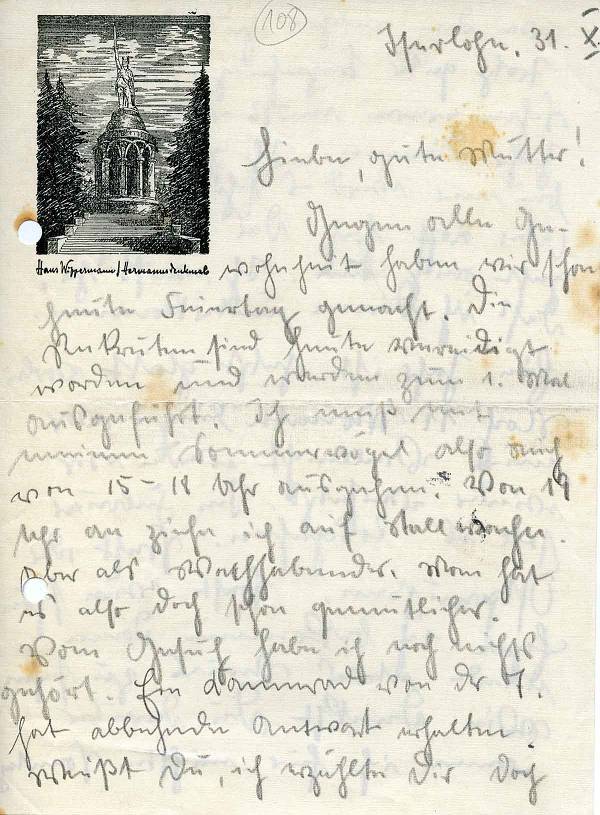 108
Iserlohn, 31. X.
Liebe, gute Mutter!
Gegen alle Ge-
Hans Wippermann / Hermannsdenkmal
wohnheit haben wir schon
heute Feiertag gemacht. Die
Rekruten sind heute vereidigt
worden und werden zum 1. Mal
ausgeführt. Ich muß mit
meinem also auch
von 15-18 Uhr ausgehen. Von 19
Uhr an ziehe ich auf Stallwache.
Aber als Wachhabender. Man hat
es also doch schon gemütlicher.
Vom Gesuch habe ich noch nichts
gehört. Ein Kamerad von der 7.
hat ablehnende Antwort erhalten.
Weißt Du, ich erzählte Dir doch